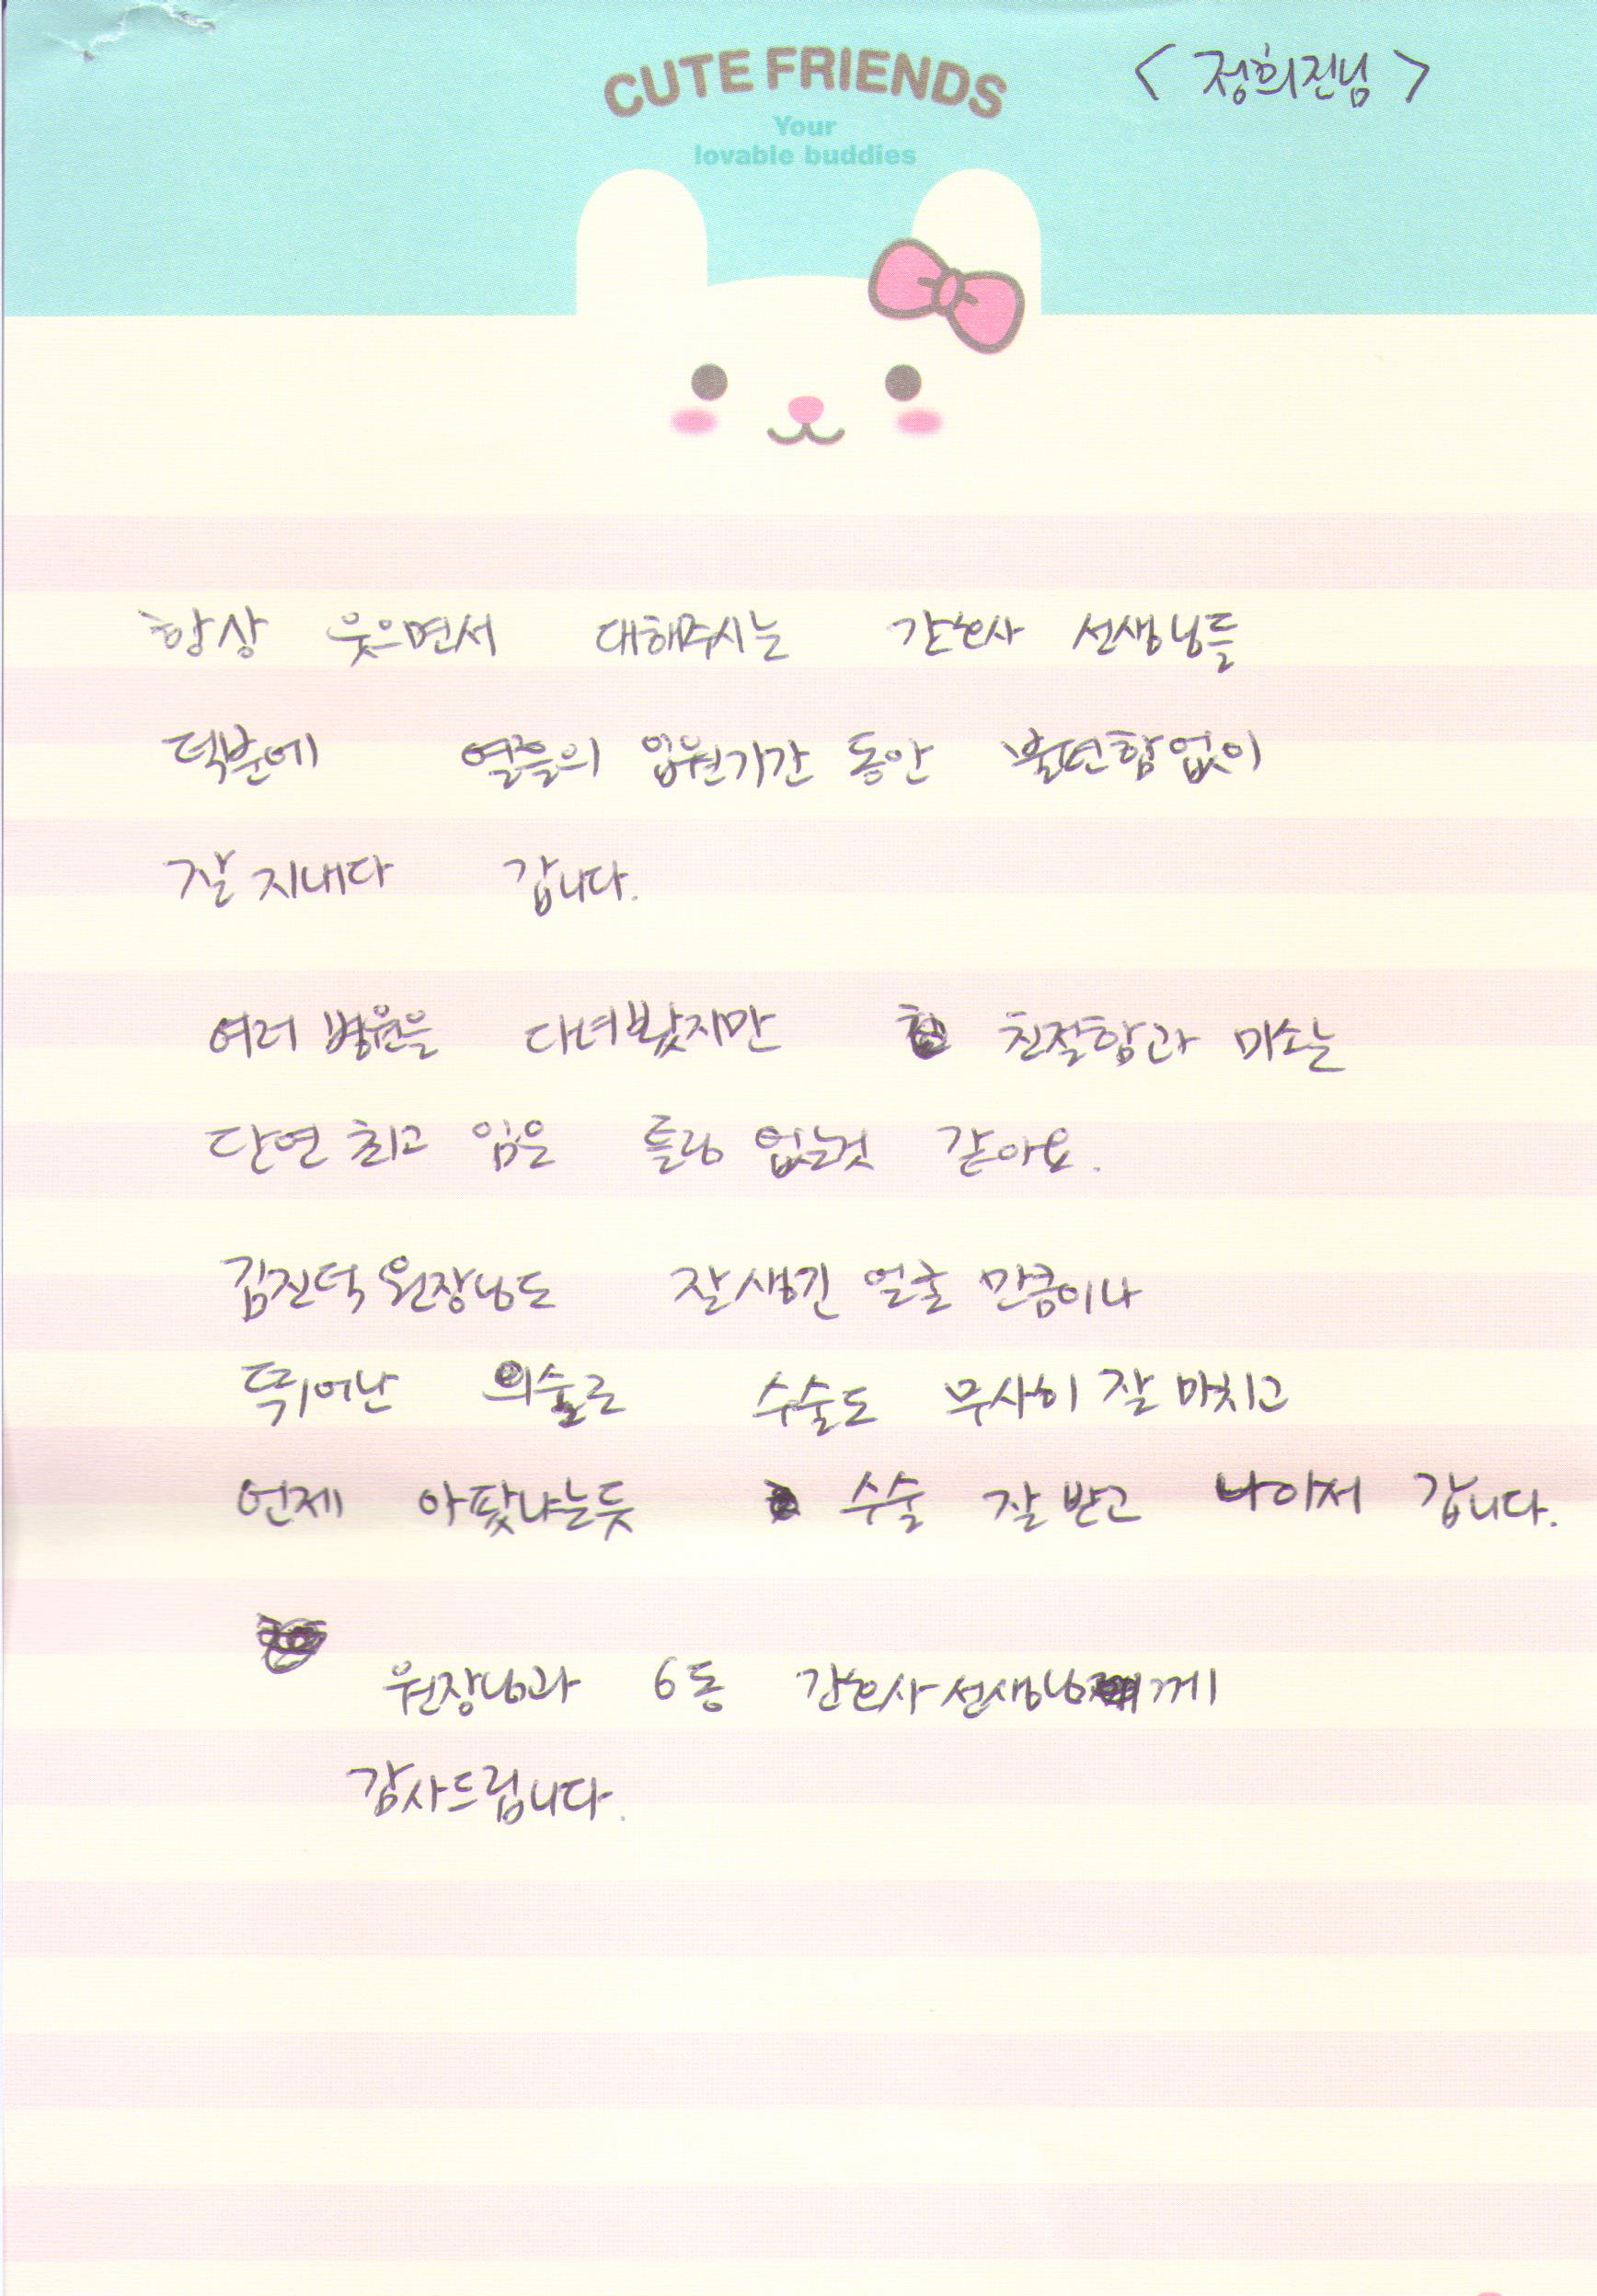 CUTE FRIENDS
Your
lovable buddies
< 정희진님 >
항상 웃으면서 대해주시는 간호사 선생님들
덕분에 열흘의 입원기간 동안 불편함없이
잘 지내다 갑니다.
여러 병원을 다녀봤지만 친절함과 미소는
단연 최고 임은 틀림 없는것 같아요.
김진덕 원장님도 잘생긴 얼굴 만큼이나
뛰어난 의술로 수술도 무사히 잘 마치고
언제 아팠냐는듯 수술 잘 받고 나아서 갑니다.
원장님과 6동 간호사선생님께
감사드립니다.